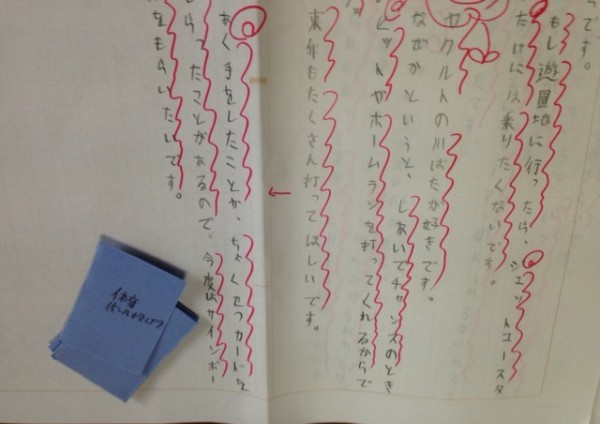 らです。
もし遊園地に行ったら、ジェットコースタ
だけには乗りたくないです。
ヤクルトの川ばたが好きです。
なぜかというと、しあいでチャンスのとき
ヒットやホームランを打ってくれるからで
来年もたくさん打ってほしいです。
あく手をしたことが、ちょくせつカードを
もらったことがあるので、今度はサインボー
をもらいたいです。